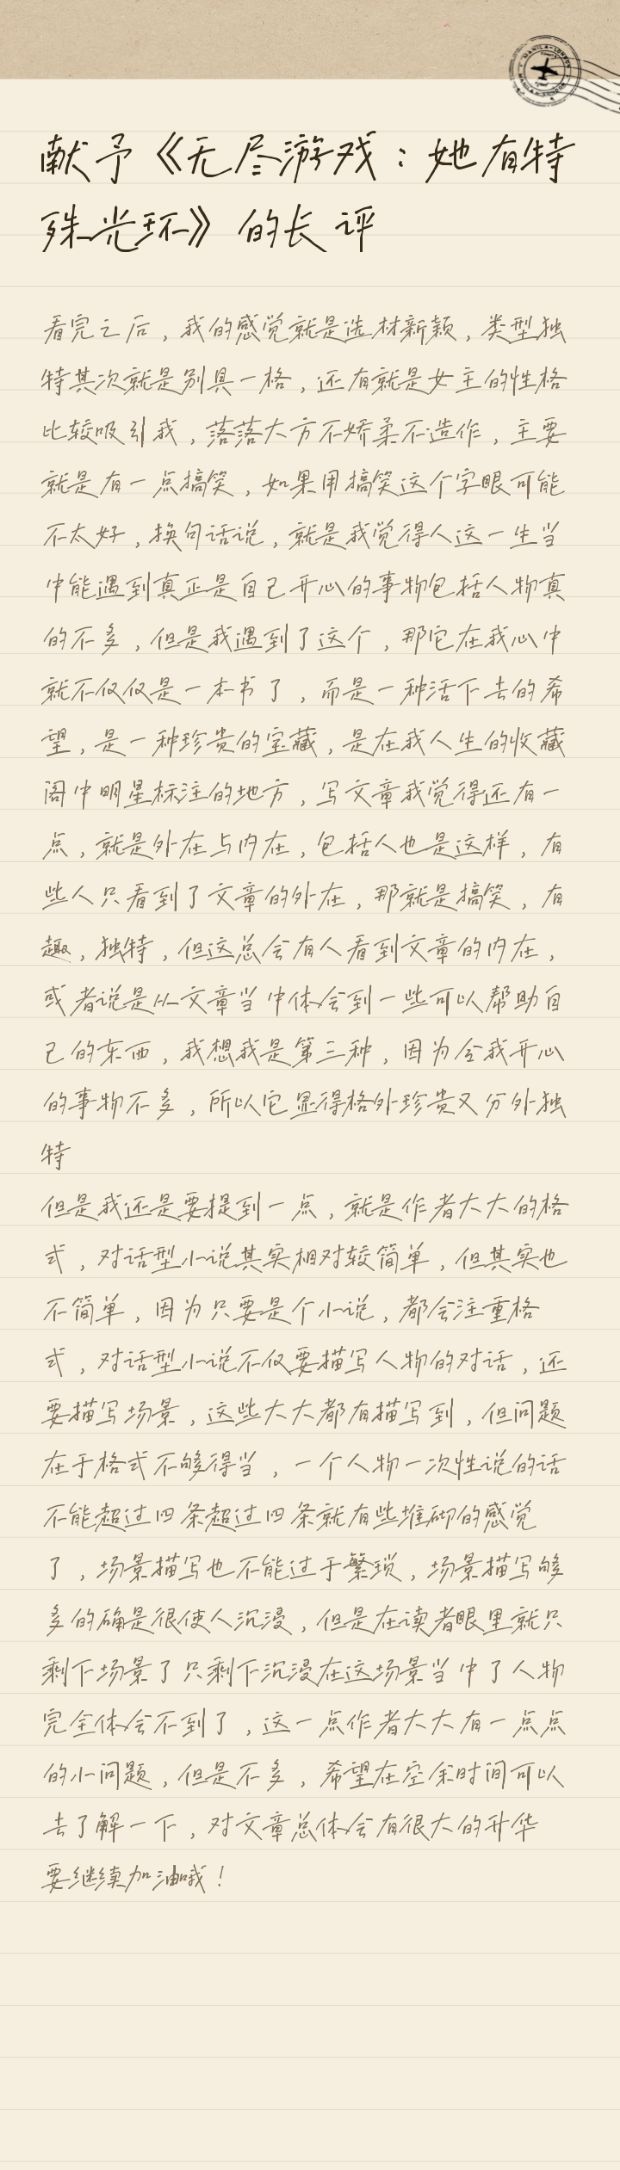 献予《无尽游戏：她有特
殊光环》的长评
看完之后，我的感觉就是选材新颖，类型独
特其次就是别具一格，还有就是女主的性格
比较吸引我，落落大方不娇柔不造作，主要
就是有一点搞笑，如果用搞笑这个字眼可能
不太好，换句话说，就是我觉得人这一生当
中能遇到真正是自己开心的事物包括人物真
的不多，但是我遇到了这个，那它在我心中
就不仅仅是一本书了，而是一种活下去的希
望，是一种珍贵的宝藏，是在我人生的收藏
阁中明星标注的地方，写文章我觉得还有一
点，就是外在与内在，包括人也是这样，有
些人只看到了文章的外在，那就是搞笑，有
趣，独特，但这总会有人看到文章的内在，
或者说是从文章当中体会到一些可以帮助自
己的东西，我想我是第三种，因为令我开心
的事物不多，所以它显得格外珍贵又分外独
特
但是我还是要提到一点，就是作者大大的格
式，对话型小说其实相对较简单，但其实也
不简单，因为只要是个小说，都会注重格
式，对话型小说不仅要描写人物的对话，还
要描写场景，这些大大都有描写到，但问题
在于格式不够得当，一个人物一次性说的话
不能超过四条超过四条就有些堆砌的感觉
了，场景描写也不能过于繁琐，场景描写够
多的确是很使人沉浸，但是在读者眼里就只
剩下场景了只剩下沉浸在这场景当中了人物
完全体会不到了，这一点作者大大有一点点
的小问题，但是不多，希望在空余时间可以
去了解一下，对文章总体会有很大的升华
要继续加油哦！